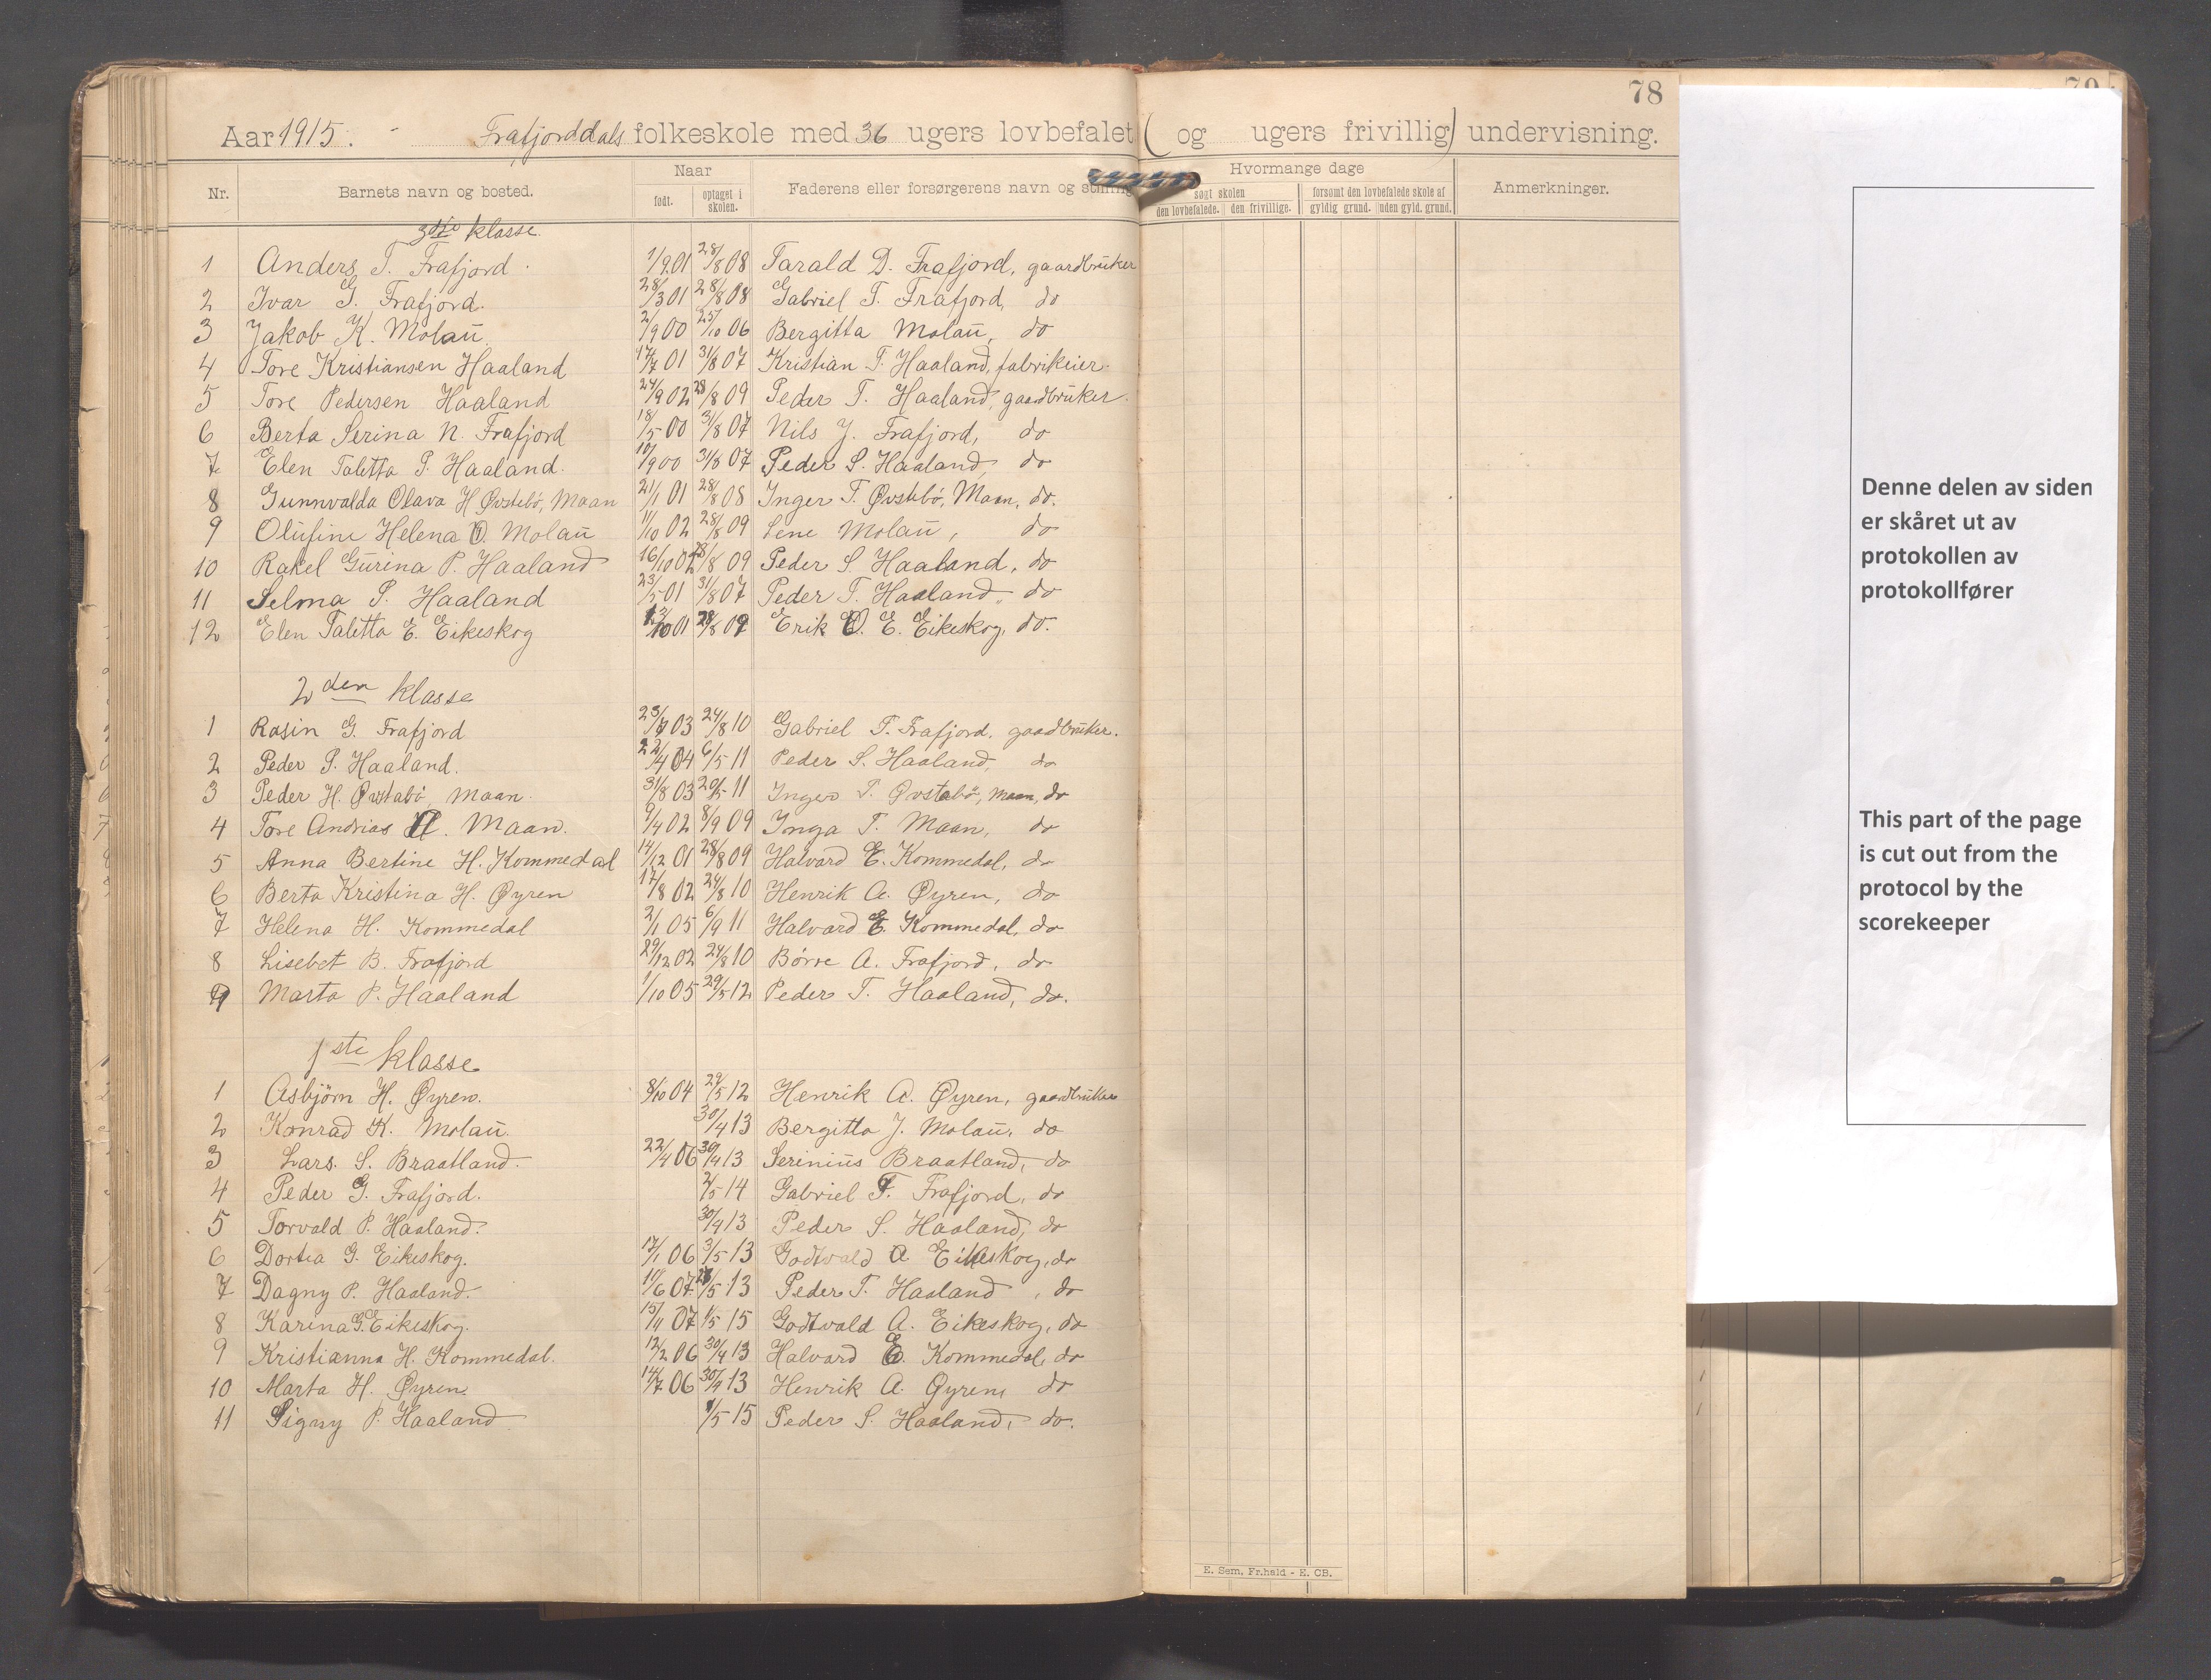 78
Aar 1915. - Frafjorddals folkeskole med 36 ugers lovbefalet (og ugers frivillig) undervisning.
Nr. Barnets navn og bosted. Naar født. optaget i skolen. Faderens eller forsørgerens navn og stilling Hvormange dage søgt skolen den lovbefalede. den frivillige. forsømt den lovbefalede skole af gyldig grund. uden gyld. grund. Anmerkninger.
3die klasse.
1 Anders T. Frafjord. 1/9 01 28/8 08 Tarald D. Frafjord, gaardbruker
2 Ivar G. Frafjord. 28/3 01 28/8 08 Gabriel T. Frafjord, do
3 Jakob K. Molaŭ. 2/9 00 25/10 06 Bergitta Molaŭ, do
4 Tore Kristiansen Haaland 17/7 01 31/8 07 Kristian T. Haaland, fabrikeier.
5 Tore Pedersen Haaland 24/9 02 28/8 09 Peder T. Haaland, gaardbruker.
6 Berta Serina N. Frafjord 18/5 00 31/8 07 Nils J. Frafjord, do
7 Elen Taletta P. Haaland. 10/9 00 31/8 07 Peder S. Haaland, do
8 Gunnvalda Olava H Øvstebö, Maan 21/1 01 28/8 08 Inger T. Øvstebö, Maan, do.
9 Olufine Helena O. Molaŭ 11/10 02 28/8 09 Lene Molaŭ, do
10 Rakel Gurina P. Haaland 16/10 02 28/8 09 Peder S. Haaland, do
11 Selma P. Haaland 23/5 01 31/8 07 Peder T. Haaland, do
12 Elen Taletta E. Eikeskog 12/10 01 28/8 09 Erik O. E. Eikeskog, do.
2den klasse
1 Rasin G. Frafjord 23/7 03 24/8 10 Gabriel T. Frafjord, gaardbruker.
2 Peder P. Haaland. 22/4 04 6/5 11 Peder S. Haaland, do
3 Peder H. Øvstabö, Maan. 31/8 03 29/5 11 Inger T. Øvstabö, Maan, do
4 Tore Andrias Maan. 9/4 02 8/9 09 Inga T. Maan, do
5 Anna Bertine H. Kommedal 14/12 01 28/8 09 Halvard E. Kommedal, do
6 Berta Kristina H. Øyren 17/8 02 24/8 10 Henrik A. Øyren, do
7 Helena H. Kommedal 2/1 05 6/9 11 Halvard E. Kommedal, do
8 Lisebet B. Frafjord 29/12 02 24/8 10 Börre A. Frafjord, do
9 Marta P. Haaland 1/10 05 29/5 12 Peder T. Haaland, do.
1ste klasse
1 Asbjörn H. Øyren. 8/10 04 29/5 12 Henrik A. Øyren, gaardbruker
2 Konrad K. Molaŭ. 30/4 13 Bergitta J. Molaŭ, do
3 Lars. S. Braatland. 22/4 06 30/4 13 Serinius Braatland, do
4 Peder G. Frafjord. 2/5 14 Gabriel T. Frafjord, do
5 Torvald P. Haaland. 30/4 13 Peder S. Haaland, do
6 Dortea G. Eikeskog. 17/1 06 3/5 13 Godtvald A. Eikeskog, do
7 Dagny P. Haaland. 10/6 07 /5 13 Peder T. Haaland, do
8 Karina G. Eikeskog. 15/11 07 1/5 15 Godtvald A. Eikeskog, do
9 Kristianna H. Kommedal. 12/2 06 30/4 13 Halvard E. Kommedal, do
10 Marta H. Øyren. 14/7 06 30/4 13 Henrik A. Øyren, do
11 Signy P. Haaland 1/5 15 Peder S. Haaland, do.
E. Sem, Fr.hald - E. CB.
Denne delen av siden
er skåret ut av
protokollen av
protokollfører
This part of the page
is cut out from the
protocol by the
scorekeeper